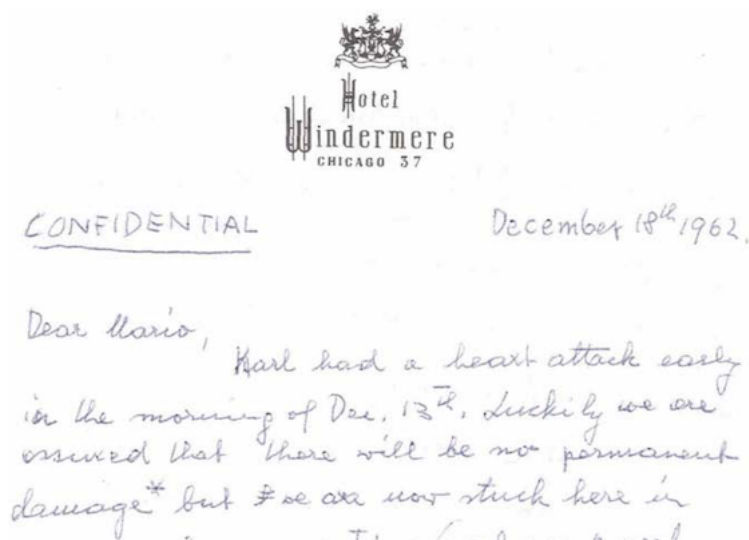 Hotel
Windermere
CHICAGO 37
CONFIDENTIAL
December 18th 1962.
Dear Mario,
Karl had a heart attack early
in the morning of Dec. 13th. Luckily we are
assured that there will be no permanent
damage* but we are now stuck here in